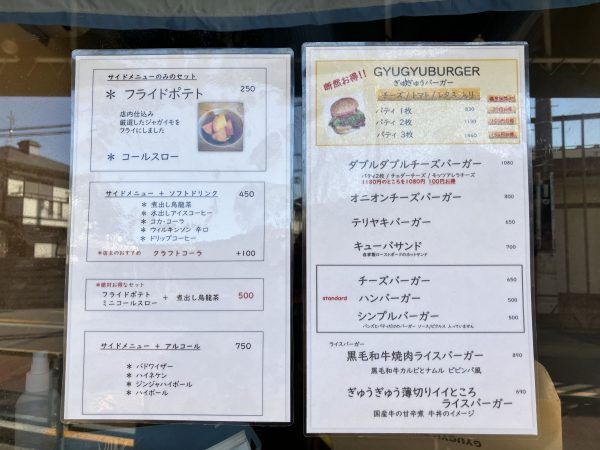 サイドメニューのみのセット
＊ フライドポテト 250
店内仕込み
厳選したジャガイモを
フライにしました
＊ コールスロー
サイドメニュー ＋ ソフトドリンク 450
＊ 煮出し烏龍茶
＊ 水出しアイスコーヒー
＊ コカ・コーラ
＊ ウィルキンソン 辛口
＊ ドリップコーヒー
＊店主のおすすめ クラフトコーラ +100
＊絶対お得なセット
フライドポテト
ミニコールスロー ＋ 煮出し烏龍茶 500
サイドメニュー ＋ アルコール 750
＊ バドワイザー
＊ ハイネケン
＊ ジンジャハイボール
＊ ハイボール
断然お得!!
GYUGYUBURGER
ぎゅぎゅうバーガー
チーズ / トマト / レタス 入り
パティ 1枚 830
パティ 2枚 1130
パティ 3枚 1460
ダブルダブルチーズバーガー 1080
パティ2枚 / チェダーチーズ / モッツアレラチーズ
1180円のところを1080円 100円お得
オニオンチーズバーガー 800
テリヤキバーガー 650
キューバサンド 700
自家製ローストポークのホットサンド
チーズバーガー 650
standard ハンバーガー 500
シンプルバーガー 500
バンズとパティだけのバーガー ソース/ピクルス 入っていません
ライスバーガー
黒毛和牛焼肉ライスバーガー 890
黒毛和牛カルビとナムル ビビンバ風
ぎゅうぎゅう薄切りイイところ 690
ライスバーガー
国産牛の甘辛煮 牛丼のイメージ